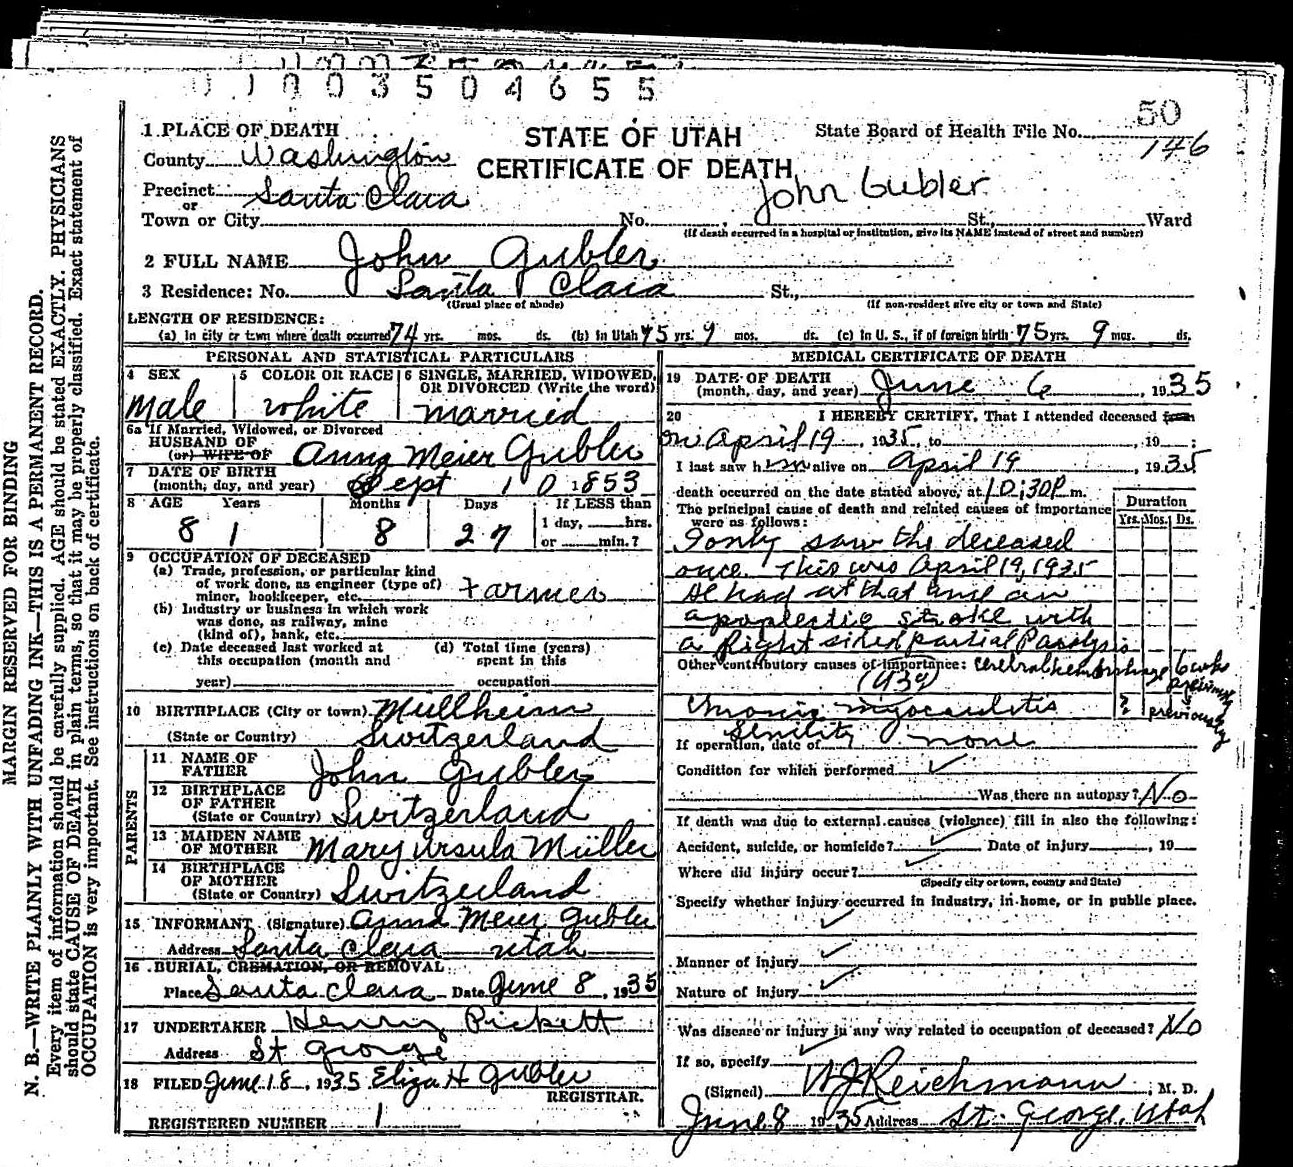 0 1 0 0 3 5 0 4 6 5 5
50
1 PLACE OF DEATH
STATE OF UTAH
State Board of Health File No. 146
County Washington
CERTIFICATE OF DEATH
Precinct Santa Clara
or
John Gubler
Town or City No. St., Ward
(If death occurred in a hospital or institution, give its NAME instead of street and number)
2 FULL NAME John Gubler
3 Residence: No. Santa Clara St.,
(Usual place of abode) (If non-resident give city or town and State)
LENGTH OF RESIDENCE:
(a) In city or town where death occurred 74 yrs. mos. ds. (b) In Utah 75 yrs. 9 mos. ds. (c) In U. S., if of foreign birth 75 yrs. 9 mos. ds.
PERSONAL AND STATISTICAL PARTICULARS
4 SEX 5 COLOR OR RACE 6 SINGLE, MARRIED, WIDOWED, OR DIVORCED (Write the word)
male white married
6a If Married, Widowed, or Divorced
HUSBAND OF
(or) WIFE OF Anna Meier Gubler
7 DATE OF BIRTH
(month, day, and year) Sept 10 1853
8 AGE Years Months Days If LESS than
81 8 27 1 day, hrs.
or min.?
9 OCCUPATION OF DECEASED
(a) Trade, profession, or particular kind
of work done, as engineer (type of)
miner, bookkeeper, etc. Farmer
(b) Industry or business in which work
was done, as railway, mine
(kind of), bank, etc.
(c) Date deceased last worked at (d) Total time (years)
this occupation (month and spent in this
year) occupation
10 BIRTHPLACE (City or town) Mullheim
(State or Country) Switzerland
PARENTS
11 NAME OF
FATHER John Gubler
12 BIRTHPLACE
OF FATHER
(State or Country) Switzerland
13 MAIDEN NAME
OF MOTHER Mary Ursula Müller
14 BIRTHPLACE
OF MOTHER
(State or Country) Switzerland
15 INFORMANT (Signature) Anna Meier Gubler
Address Santa Clara Utah
16 BURIAL, CREMATION, OR REMOVAL
Place Santa Clara Date June 8, 1935
17 UNDERTAKER Henry Pickett
Address St George
18 FILED June 18, 1935 Eliza H Gubler
REGISTRAR.
REGISTERED NUMBER 1
MEDICAL CERTIFICATE OF DEATH
19 DATE OF DEATH
(month, day, and year) June 6, 1935
20 I HEREBY CERTIFY, That I attended deceased from
on April 19, 1935, to , 19 ;
I last saw him alive on April 19, 1935
death occurred on the date stated above, at 10:30P m.
The principal cause of death and related causes of importance
were as follows:
Duration
Yrs. Mos. Ds.
I only saw the deceased
once. This was April 19, 1935
He had at that time an
apoplectic stroke with
a Right sided partial Paralysis
Other contributory causes of importance: Cerebral hemorrhage 6 wks
previously
Chronic myocarditis ? previously
Senility
If operation, date of none
Condition for which performed
Was there an autopsy? No
If death was due to external causes (violence) fill in also the following:
Accident, suicide, or homicide? Date of injury , 19
Where did injury occur?
(Specify city or town, county and State)
Specify whether injury occurred in industry, in home, or in public place.
Manner of injury
Nature of injury
Was disease or injury in any way related to occupation of deceased? No
If so, specify
(Signed) W J Reichmann, M. D.
June 8 1935 Address St. George, Utah
MARGIN RESERVED FOR BINDING
N. B.—WRITE PLAINLY WITH UNFADING INK—THIS IS A PERMANENT RECORD.
Every item of information should be carefully supplied. AGE should be stated EXACTLY. PHYSICIANS
should state CAUSE OF DEATH in plain terms, so that it may be properly classified. Exact statement of
OCCUPATION is very important. See instructions on back of certificate.